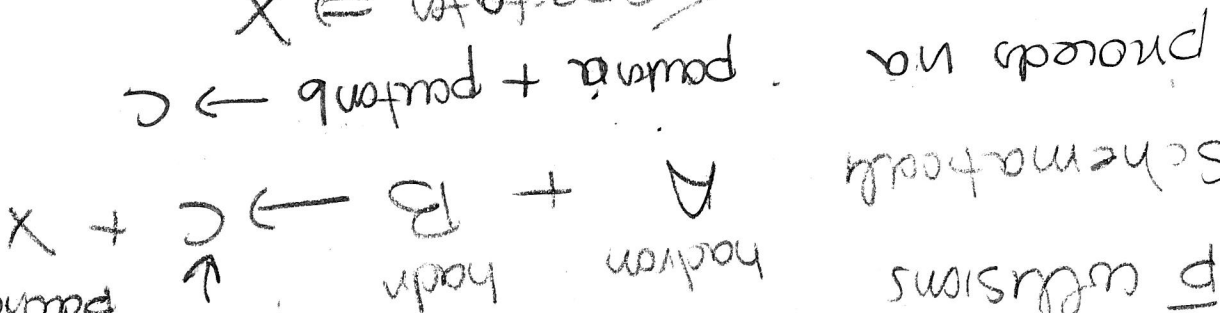 p̄ collisions hadron hadn
Schematically A + B → C + X
proceeds via partona + partonb → C
⇒ X